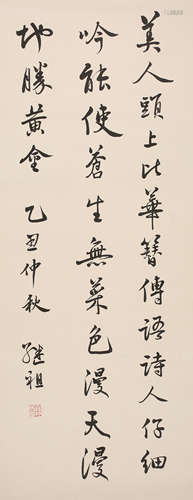 美人頭上比華簪傳語詩人仔細
吟能使蒼生無菜色漫天漫
地勝黃金 乙丑仲秋 继祖